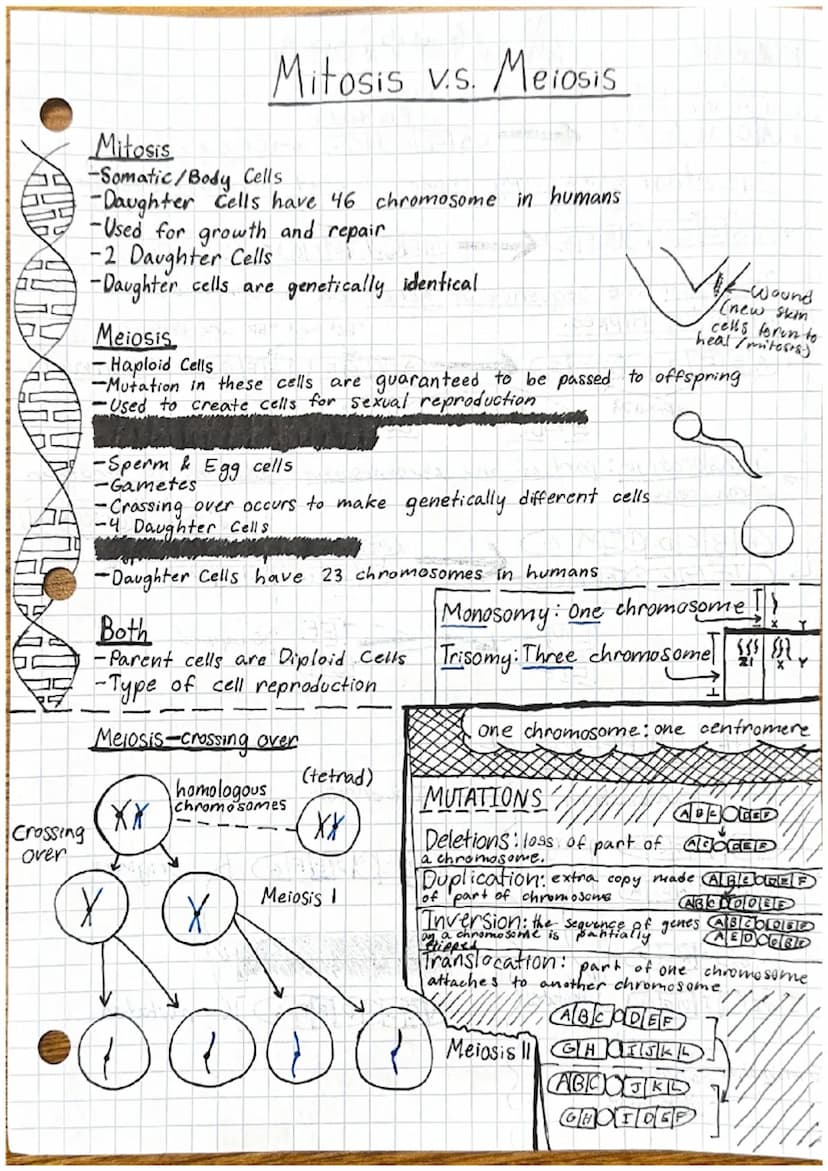 Mitosis v.s. Meiosis
Mitosis
-Somatic/Body Cells
-Daughter Cells have 46 chromosome in humans
-Used for growth and repair
-2 Daughter Cells
-Daughter cells are genetically identical
Wound
(new skin
cells form to
heal/mitosis)
Meiosis
-Haploid Cells
-Mutation in these cells are guaranteed to be passed to offspring
-Used to create cells for sexual reproduction
-Sperm & Egg cells
-Gametes
-Crossing over occurs to make genetically different cells
-4 Daughter Cells
-Daughter Cells have 23 chromosomes in humans
Both
-Parent cells are Diploid Cells
-Type of cell reproduction
Monosomy: One chromosome
X Y
Trisomy: Three chromosome
21 X Y
one chromosome: one centromere
Meiosis-crossing over
homologous
chromosomes
(tetrad)
Crossing
over
Meiosis I
Meiosis II
MUTATIONS
A B C D E F
Deletions: loss of part of
a chromosome.
A C D E F
Duplication: extra copy made
of part of chromosome
A B C D E F
A B C D D E F
Inversion: the sequence of genes
on a chromosome is
flipped
A B C D E F
A E D C B F
Translocation: part of one chromosome
attaches to another chromosome
A B C D E F
G H I J K L
A B C J K L
G H I D E F